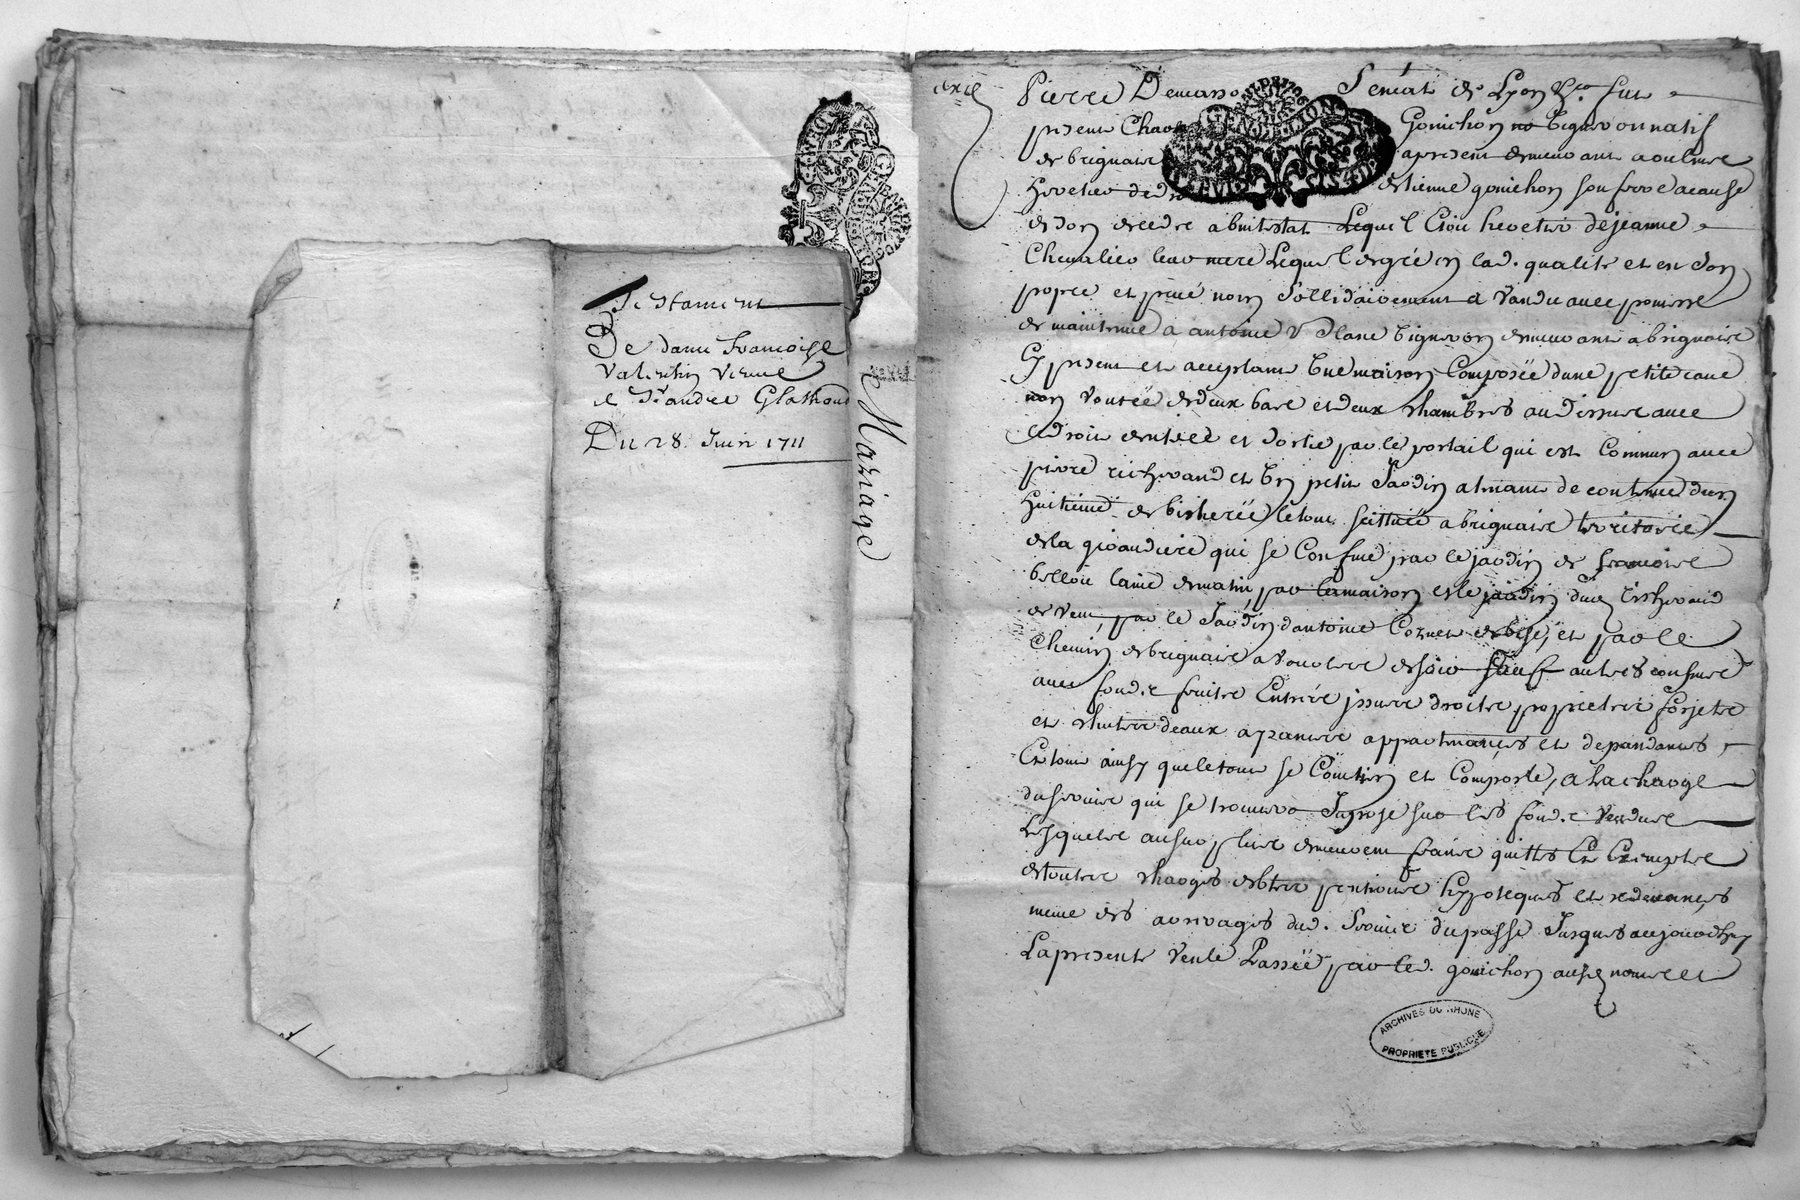 Testament
De dame francoise
Valentin veuve
de Sr andre Glathoud
Du 28 Juin 1711
Mariage
GEN
GENDELION
Pierre Demasso Senéal de Lyon
present Gonichon vigneron natif
de brignaire apresent demeurant aoulins
heretier de estienne gonichon son frere acause
de son decedre abintestat Lequel Etoit heretier dejeanne
Chevalier leur mere Lequel degré en lad. qualite et en son
propre et privé nom Sollidairement a Vandu avec promesse
de maintenue a antoine blanc vigneron demeurant abrignaire
Cy present et acceptant Une maison Composée dune petite cave
non voutée dedeux bas et deux chambres au dessus avec
le droit dentrée et sortie par le portail qui est Commun avec
pierre richerand et Un petit Jardin atenant de contenue dun
huitieme de bicherée letout scittué abrignaire territoire
dela giraudiere qui se Confine par le jardin de francois
belloit laine dematin, par lamaison et le jardin dud. richerand
de vent, par le Jardin dantoine Cornet debise, et par le
Chemin debrignaire a vourles desoir Sauf autres confins
avec fonds fruits Entrée issues droits proprietes forjets
et chutes deaux aysances appartenances et dependances
Et tout ainsy queletout se Contien et Comporte, a la charge
du servis qui se trouvera Imposé sur les fonds vendus
Lesquels ausurplus demeurent francs quittes Et Exempts
detoutes charges debtes pentions hypoteques et redevances
meme des arrerages dud. Servis dupassé Jusques aujourdhuy
Lapresente vente Passée par led. gonichon ausd. noms et
ARCHIVES DU RHONE
PROPRIETE PUBLIQUE